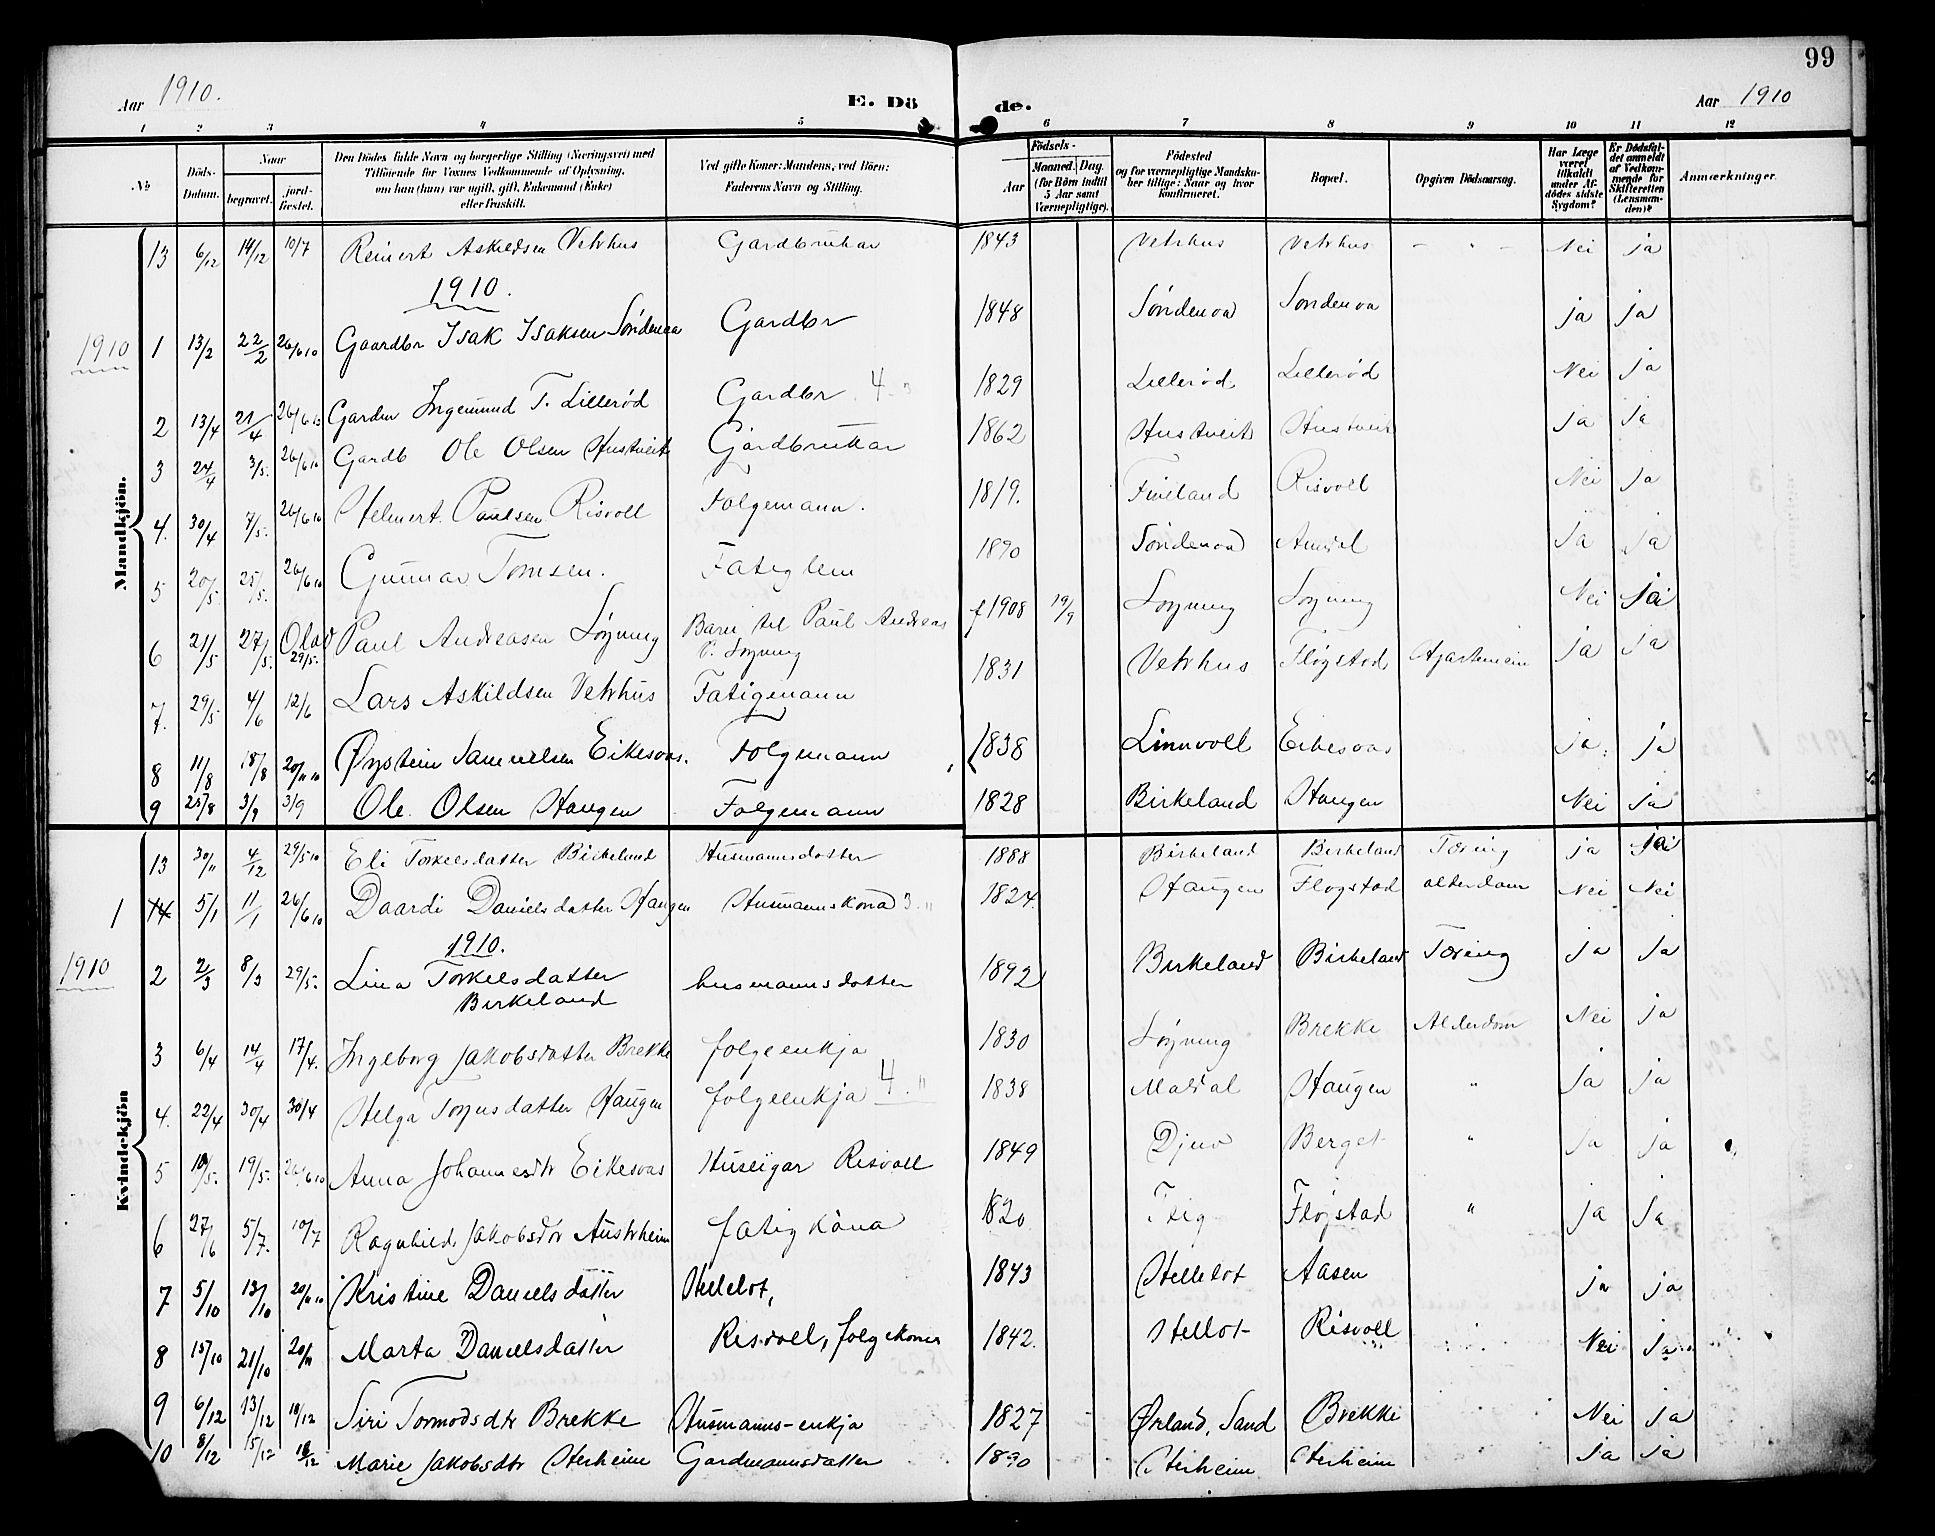 99
Aar 1910.
E. Dö de.
Aar 1910
1 2 3 4 5 6 7 8 9 10 11 12
No
Döds-Datum.
Naar
begravet.
jord-fæstet.
Den Dödes fulde Navn og borgerlige Stilling (Næringsvei) med
Tilföiende for Voxnes Vedkommende af Oplysning,
om han (hun) var ugift, gift, Enkemand (Enke)
eller fraskilt.
Ved gifte Koner: Mandens, ved Börn:
Faderens Navn og Stilling.
Födsels-
Aar
Maaned. Dag.
(for Börn indtil
5 Aar samt
Værnepligtige).
Födested
og for værnepligtige Mandska-
ber tillige: Naar og hvor
konfirmeret.
Bopæl.
Opgiven Dödsaarsag.
Har Læge
været
tilkaldt
under Af-
dödes sidste
Sygdom?
Er Dödsfal-
det anmeldt
af Vedkom-
mende for
Skifteretten
(Lensman-
den)?
Anmærkninger.
Mandkjön.
13 6/12 14/12 10/7 Reinert Askildsen Vetrhus Gardbrukar 1843 Vetrhus Vetrhus - " - Nei ja
1910.
1910
1 13/2 22/2 26/6 10 Gaardbr Isak Isaksen Söndenaa Gardbr 1848 Söndenaa Sondenaa ja ja
2 13/4 21/4 26/6 10 Ingemund T. Lillerød Gardbr 4 1829 Lillerød Lillerød Nei ja
3 24/4 3/5. 26/6 10 Gardb Ole Olsen Hustveit Gardbrukar 1862 Hustveit Hustveit Ja Ja
4. 30/4 7/5. 26/6 10 Helmert Paulsen Risvoll Folgemann. 1819. Fineland Risvoll Nei Ja
5 20/5 25/5. 26/6 10 Gunnar Tomsen. Fatiglem 1890 Söndenaa Ja Ja
6 21/5 27/5. Olav 29/5. Paul Andreasen Löyning Barn til Paul Andreas P. Loyning f 1908 19/9 Loyning Loyning Nei Ja
7. 29/5 4/6 12/6 Lars Askildsen Vetrhus Fatigemann 1831 Vetrhus Fløgstad ja ja
8 11/8 18/8 20/11 10 Øystein Samuelsen Eikesaas. Folgemann 1838 Linnvoll Eikesaas ja ja
9 25/8 3/9 3/9 Ole Olsen Haugen Folgemann 1828 Birkeland Haugen Nei ja
Kvindekjön
13 30/11 4/12 29/5 10 Eli Torkelsdatter Birkeland Husmannsdatter 1888 Birkeland Birkeland Tæring ja ja
1 14 5/1 11/1 26/6 10 Daardi Danielsdatter Haugen Husmannskona 3 " 1824. Haugen Flogstad alderdom Nei Nei
1910.
1910
2 2/3 8/3 29/5. Lina Torkelsdatter Birkeland husmannsdatter 1892 Birkeland Birkeland Tæring ja Ja
3 6/4 14/4 17/4. Ingeborg Jakobsdatter Brekke folgeenkja 1830 Löyning Brekke Alderdom Nei ja
4. 22/4 30/4 30/4 Helga Haugen folgeenkja 4 " 1838 Maldal Haugen " Ja ja
5 10/5. 19/5. 26/6 10 Anna Johannesdtr Eikesaas Huseigar Risvoll 1849 Djuv Berget " Ja ja
6 27/6 5/7. 10/7 Ragnhild Jakobsdtr Austrheim fatigkona 1820 Fløgstad " ja Ja
7 5/10 13/10 20/11 10 Kristine Danielsdatter Hellelot, 1843 Hellelot Aasen ja ja
8 15/10 21/10 20/11 Marta Danielsdatter Risvoll, folgekona 1842. Hellot Risvoll Nei Ja
9 6/12 13/12 18/12 Siri Tormodsdtr Brekke Husmanns-enkja 1827 Ørland, Sand Brekke Nei ja
10 8/12 15/12 18/12 Marie Jakobsdtr Herheim Gardmannsdatter 1890 Herheim Herheim Ja Ja